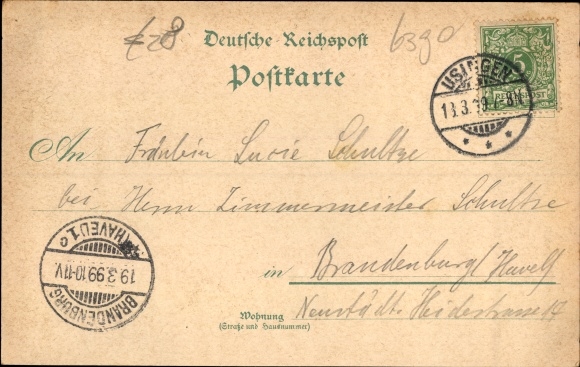 €28
Deutsche Reichspost
6390
Postkarte
5
REICHSPOST
USINGEN
18.3.99 7-8N
* * *
An Fräulein Lucie Schultze
bei Herrn Zimmermeister Schultze
in Brandenburg/Havel
Neustädt. Heidestrasse 17
Wohnung
(Straße und Hausnummer)
BRANDENBURG
19.3.99.10-11V.
(HAVEL) 1 c